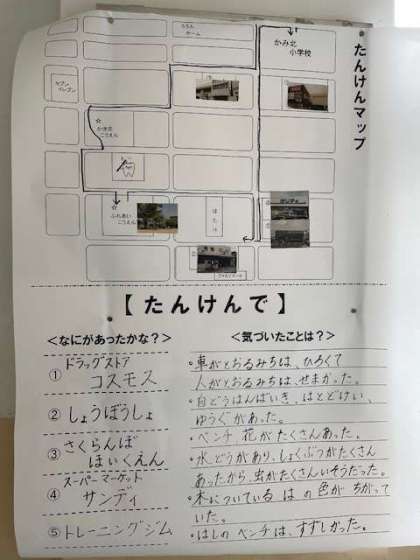 たんけんマップ
かみ北
小学校
ホーム
セブン
イレブン
☆
かきた
こうえん
☆
ふれあい
こうえん
【たんけんで】
＜なにがあったかな？＞
① ドラッグストア
コスモス
② しょうぼうしょ
③ さくらんぼ
ほいくえん
④ スーパーマーケット
サンディ
⑤ トレーニングジム
＜気づいたことは？＞
・車がとおるみちは、ひろくて
人がとおるみちは、せまかった。
・自どうはんばいき、はとどけい、
ゆうぐがあった。
・ベンチ 花がたくさんあった。
・水どうがあり、しょくぶつがたくさん
あったから、虫がたくさんいそうだった。
・木についている はの色が ちがって
いた。
・はしの ベンチは、すずしかった。